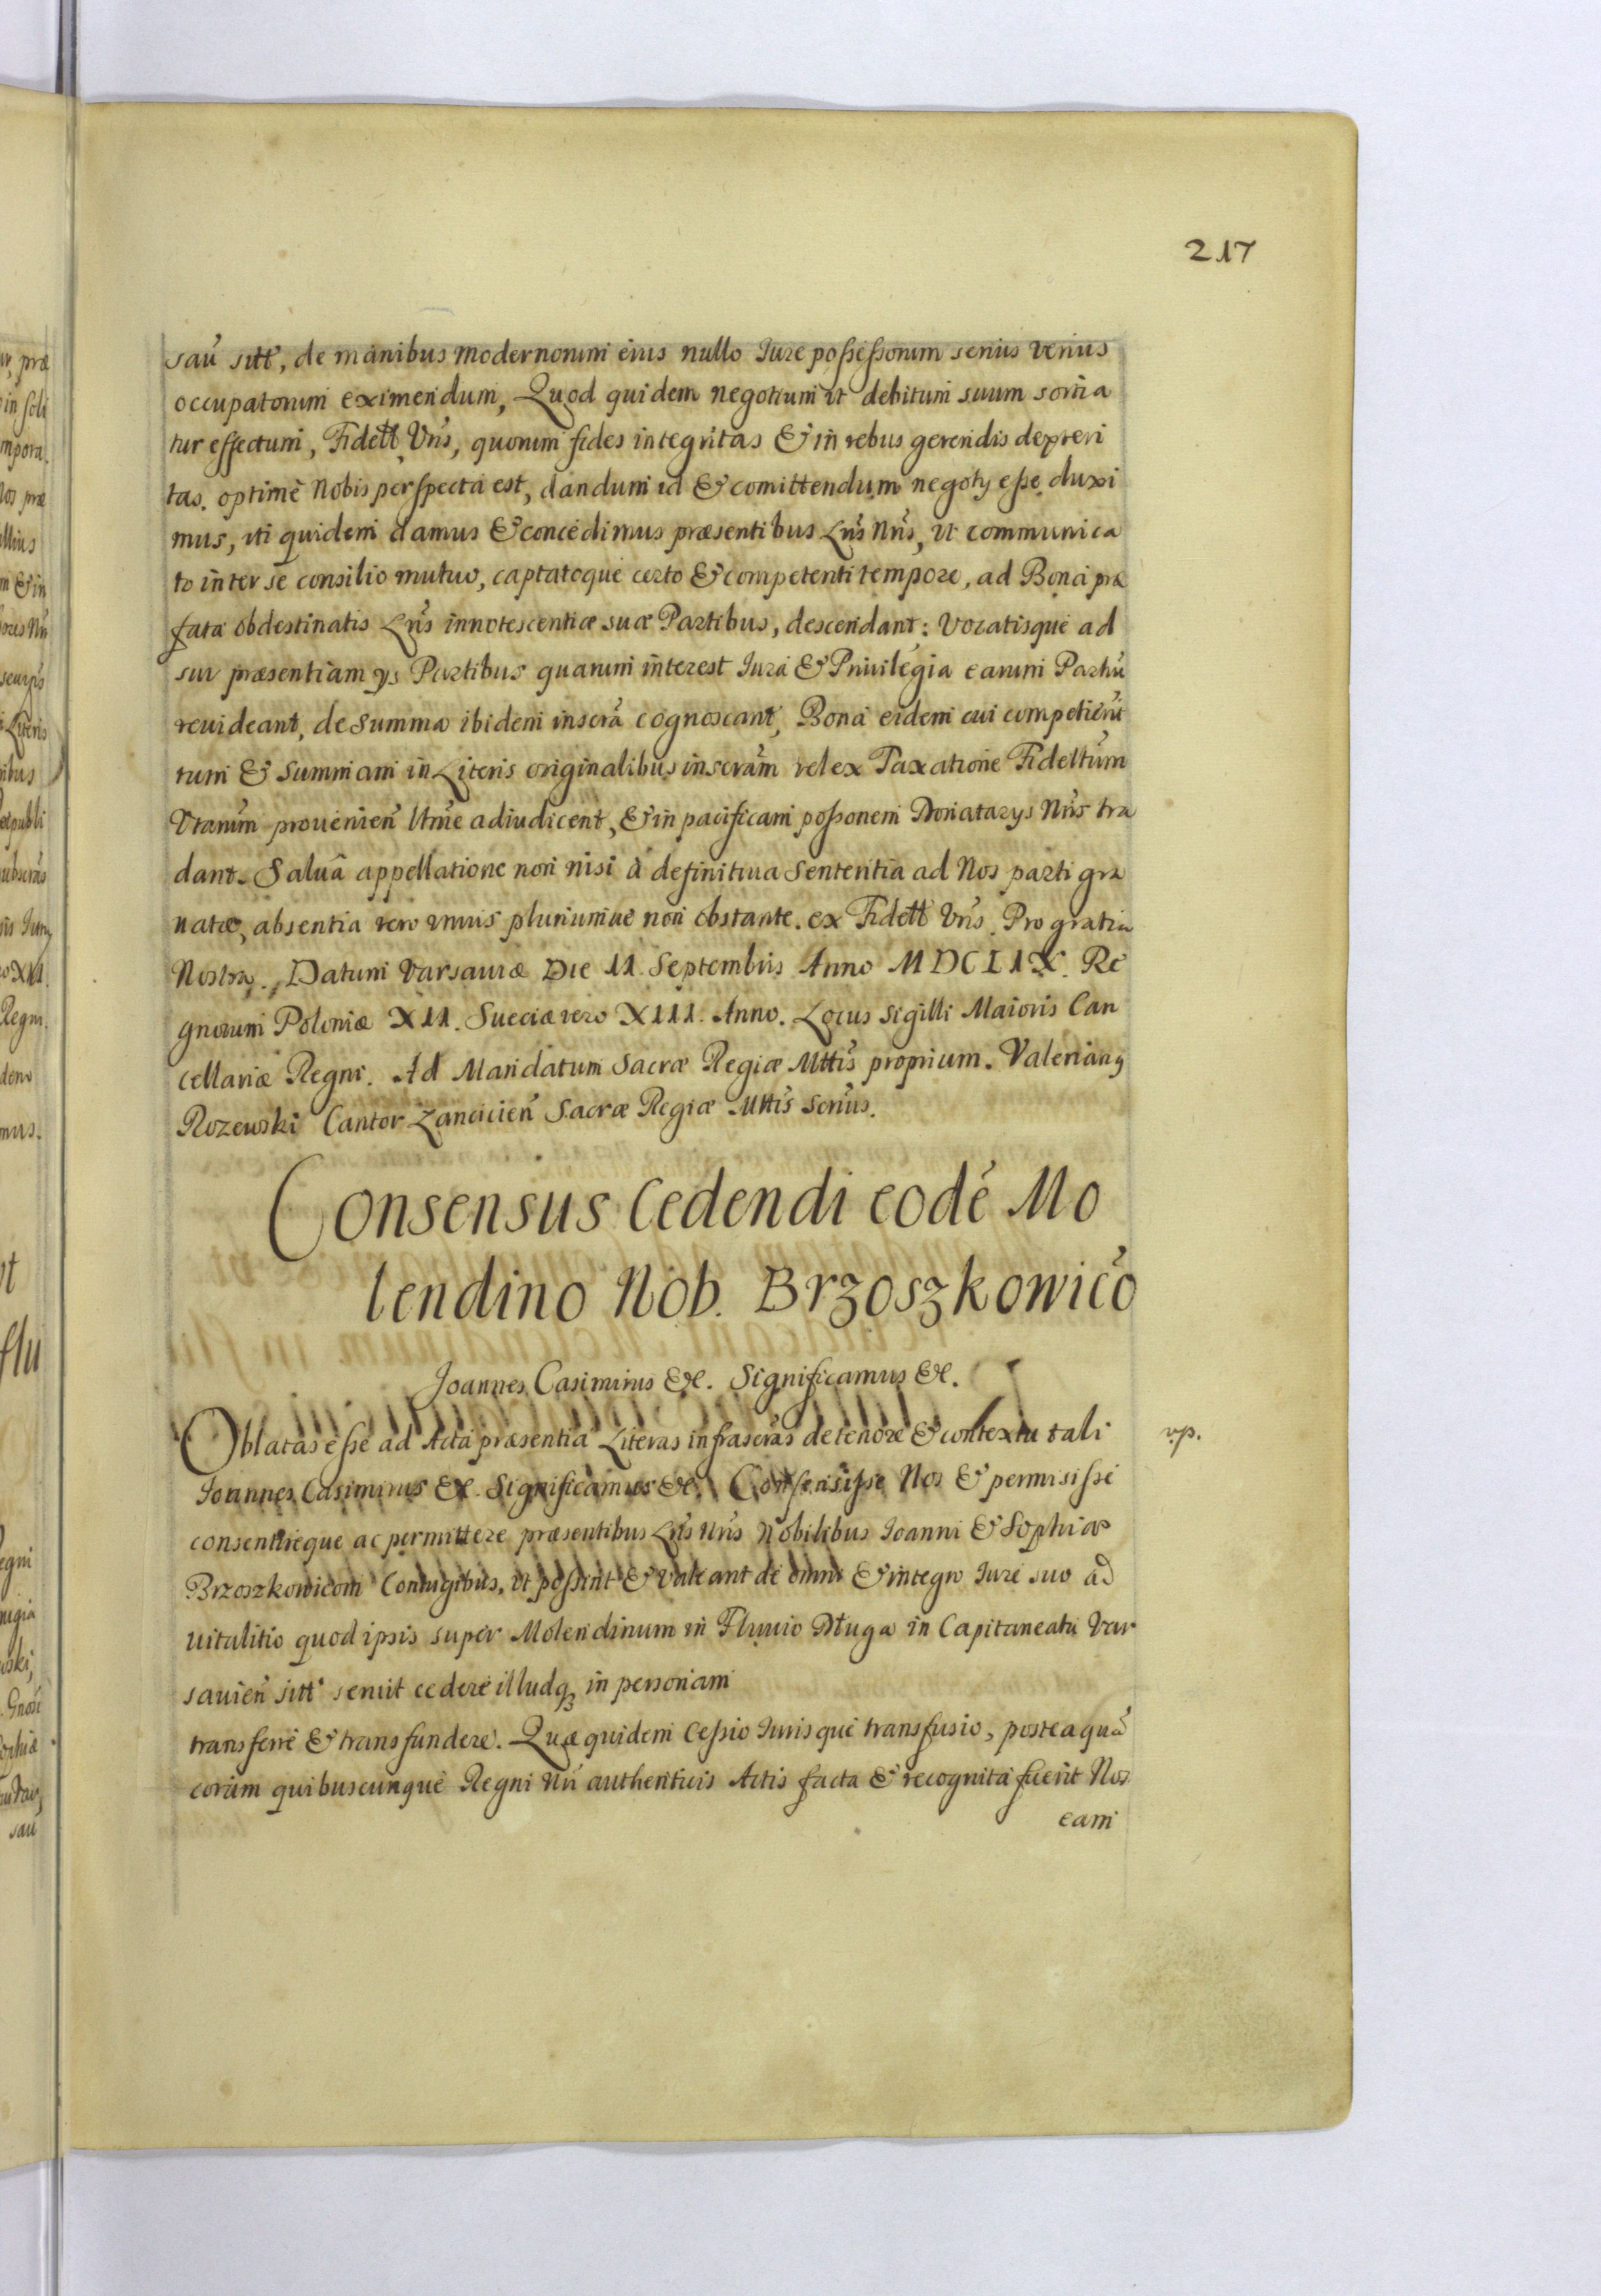 217
sau͂ sitt, de manibus modernorum eius nullo Jure possessorum serius verius
occupatorum eximendum, Quod quidem negotium ut debitum suum sortia
tur effectum, Fidett Vrı̃s, quorum fides integritas & in rebus gerendis dexteri
tas optimè Nobis perspecta est, dandum id & comittendum negoty esse duxi
mus, uti quidem damus & concedimus præsentibus Lrı̃s Nrı̃s, ut communica
to inter se consilio mutuo, captatoque certo & competenti tempore, ad Bona præ
fata obdestinatis Lrı̃s innotescentiæ suæ Partibus, descendant: Vocatisque ad
sui præsentiam ys Partibus quarum interest Jura & Privilegia earum Partiũ
revideant, de Summa ibidem inscrã cognoscant, Bona eidem cui competierit
tum & Summam in Literis originalibus inscrãm vel ex Taxatione Fideltũm
Vrarũm provenieñ Vtrı̃e adiudicent, & in pacificam possonem Donatarys Nrı̃s tra
dant. Salvâ appellatione non nisi à definitiva Sententia ad Nos parti gra
natæ, absentia vero unius pluriumue non obstante. ex Fidett Vrı̃s. Pro gratia
Nostra. Datum Varsaviæ Die 11 Septembris Anno MDCLIX. Re
gnorum Poloniæ XII. Sueciæ vero XIII. Anno. Locus Sigilli Maioris Can
cellariæ Regni. Ad Mandatum Sacræ Regiæ Mttis proprium. Valerianꝯ
Rozewski Cantor Lancicieñ Sacræ Regiæ Mttis
Consensus Cedendi eodẽ Mo
lendino Nob. Brzoszkowicõ
Joannes Casimirus &c. Significamus &c.
Oblatas esse ad Acta præsentia Literas infrascrãs de tenore & contextu tali
Joannes Casimirus &c. Significamus &c. Consensisse Nos & permisisse
consentireque ac permittere præsentibus Lrı̃s Nrı̃s Nobilibus Joanni & Sophiæ
Brzoszkowicom Coniugibus, ut possint & valeant de omni & integro Jure suo ad
vitalitio quod ipsis super Molendinum in Fluvio Długa in Capitaneatu Var
savieñ sitt servit cedere illudqꝫ in personam
transferre & transfundere. Quæ quidem Cessio Jurisque transfusio, posteaquã
coram quibuscunque Regni Nrı̃ authenticis Actis facta & recognita fuerit Nos
eam